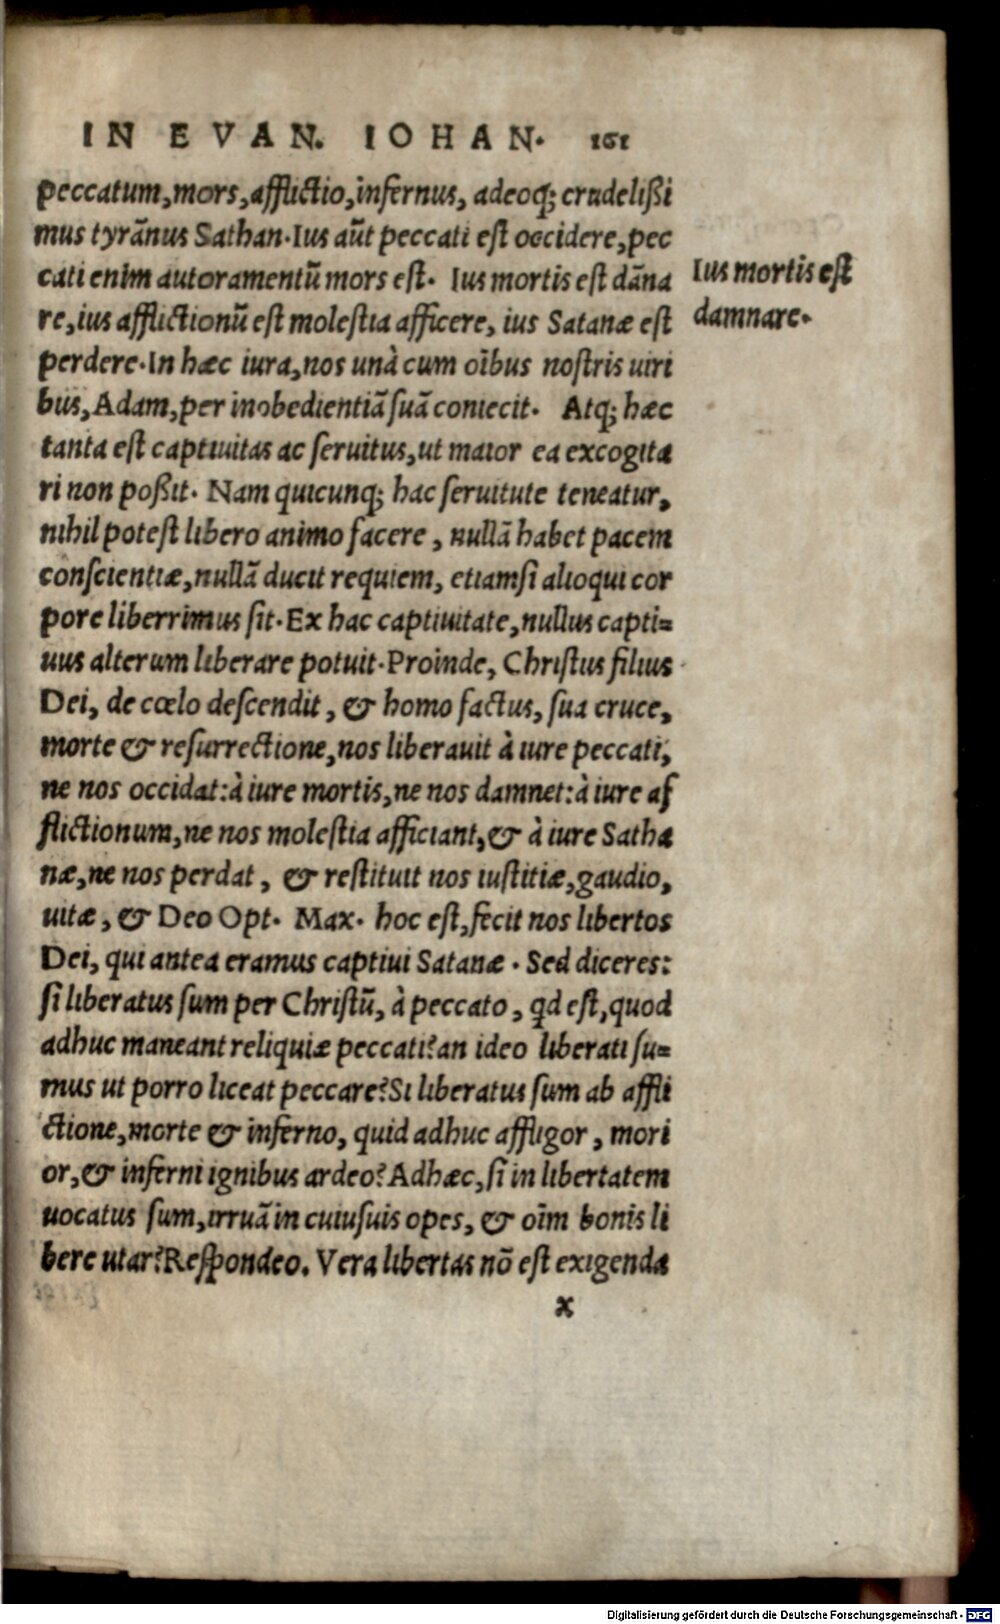 IN EVAN. IOHAN. 161
peccatum, mors, afflictio, infernus, adeoq; crudelißi
mus tyrãnus Sathan. Ius aũt peccati est occidere, pec
cati enim autoramentũ mors est. Ius mortis est dãna
re, ius afflictionũ est molestia afficere, ius Satanæ est
perdere. In hæc iura, nos unà cum oĩbus nostris uiri
bus, Adam, per inobedientiã suã coniecit. Atq; hæc
tanta est captiuitas ac seruitus, ut maior ea excogita
ri non poßit. Nam quicunq; hac seruitute teneatur,
nihil potest libero animo facere, nullã habet pacem
conscientiæ, nullã ducit requiem, etiamsi alioqui cor
pore liberrimus sit. Ex hac captiuitate, nullus capti=
uus alterum liberare potuit. Proinde, Christus filius
Dei, de cœlo descendit, & homo factus, sua cruce,
morte & resurrectione, nos liberauit à iure peccati,
ne nos occidat: à iure mortis, ne nos damnet: à iure af
flictionum, ne nos molestia afficiant, & à iure Satha
næ, ne nos perdat, & restituit nos iustitiæ, gaudio,
uitæ, & Deo Opt. Max. hoc est, fecit nos libertos
Dei, qui antea eramus captiui Satanæ. Sed diceres:
si liberatus sum per Christũ, à peccato, qd est, quod
adhuc maneant reliquiæ peccati? an ideo liberati su=
mus ut porro liceat peccare? Si liberatus sum ab affli
ctione, morte & inferno, quid adhuc affligor, mori
or, & inferni ignibus ardeo? Adhæc, si in libertatem
uocatus sum, irruã in cuiusuis opes, & oĩm bonis li
bere utar? Respondeo. Vera libertas nõ est exigenda
x
Ius mortis est
damnare.
Digitalisierung gefördert durch die Deutsche Forschungsgemeinschaft - DFG